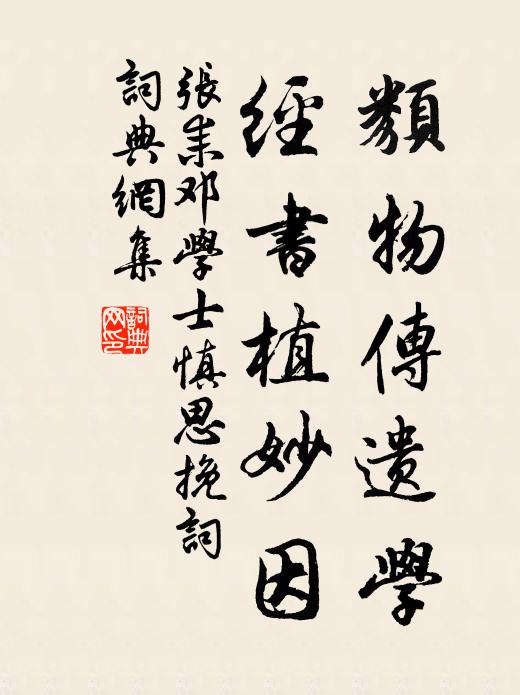 類物傳遺學
經書植妙因
張耒邓學士慎思挽詞
詞典網集
詞典
网印